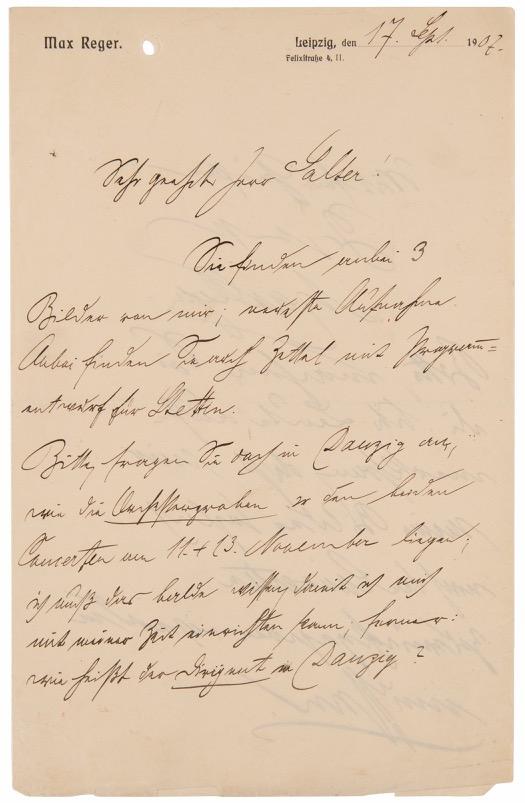 Max Reger.
Leipzig, den 17. Sept. 1907.
Felixstraße 4, II.
Sehr geehrter Herr Salter!
Sie finden anbei 3
Bilder von mir; neueste Aufnahme.
Anbei finden Sie auch Zettel mit Programm=
entwurf für Stettin.
Bitte, fragen Sie doch in Danzig an,
wie die Orchesterproben zu den beiden
Concerten am 11. + 13. November liegen;
ich muß das balde wissen, damit ich mich
mit meiner Zeit einrichten kann; ferner:
wie heißt der Dirigent in Danzig?